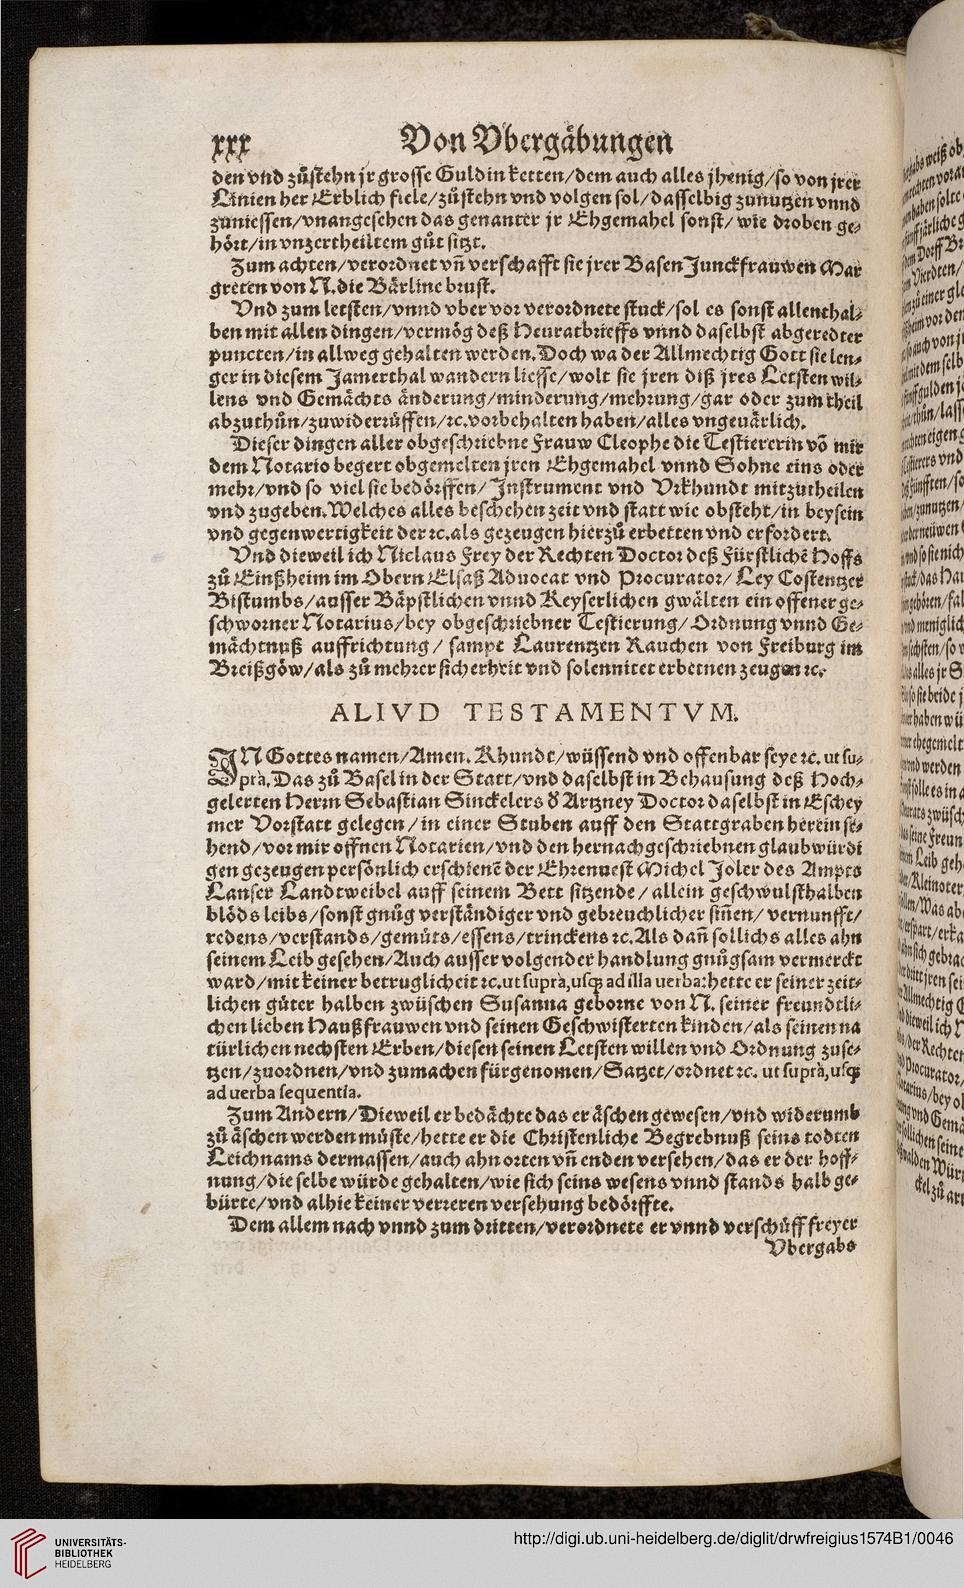 xxx Von Vbergäbungen
den vnd zůstehn jr grosse Guldin ketten/dem auch alles jhenig/so von jrer
Linien her Erblich fiele/zůstehn vnd volgen sol/dasselbig zunutzen vnnd
zuniessen/vnangesehen das genanter jr Ehgemahel sonst/wie droben ge⸗
hört/in vnzertheiltem gůt sitzt.
Zum achten/verordnet vñ verschafft sie jrer Basen Junckfrauwen Mar
greten von N. die Bärline brust.
Vnd zum letsten/vnnd vber vor verordnete stuck/sol es sonst allenthal⸗
ben mit allen dingen/vermög deß Heuratbrieffs vnnd daselbst abgeredter
puncten/in allweg gehalten werden. Doch wa der Allmechtig Gott sie len⸗
ger in diesem Jamerthal wandern liesse/wolt sie jren diß jres Letsten wil⸗
lens vnd Gemächts änderung/minderung/mehrung/gar oder zum theil
abzuthůn/zuwiderrůffen/ꝛc. vorbehalten haben/alles vngeuärlich.
Dieser dingen aller obgeschriebne Frauw Cleophe die Testiererin võ mir
dem Notario begert obgemelten jren Ehgemahel vnnd Sohne eins oder
mehr/vnd so viel sie bedörffen/ Instrument vnd Vrkhundt mitzutheilen
vnd zugeben. Welches alles beschehen zeit vnd statt wie obsteht/in beysein
vnd gegenwertigkeit der ꝛc. als gezeugen hierzů erbetten vnd erfordert.
Vnd dieweil ich Niclaus Frey der Rechten Doctor deß Fürstlichẽ Hoffs
zů Einßheim im Obern Elsaß Aduocat vnd Procurator/ Ley Costentzer
Bistumbs/ausser Bäpstlichen vnnd Keyserlichen gwälten ein offener ge⸗
schworner Notarius/bey obgeschriebner Testierung/ Ordnung vnnd Ge⸗
mächtnuß auffrichtung/ sampt Laurentzen Rauchen von Freiburg im
Breißgöw/als zů mehrer sicherheit vnd solennitet erbetnen zeugen ꝛc.
ALIVD TESTAMENTVM.
IN Gottes namen/Amen. Khundt/wüssend vnd offenbar seye ꝛc. ut su⸗
prà. Das zů Basel in der Statt/vnd daselbst in Behausung deß Hoch⸗
gelerten Herrn Sebastian Sinckelers đ Artzney Doctor daselbst in Eschey
mer Vorstatt gelegen/in einer Stuben auff den Stattgraben herein se⸗
hend/vor mir offnen Notarien/vnd den hernachgeschriebnen glaubwürdi
gen gezeugen persönlich erschienẽ der Ehrenuest Michel Joler des Ampts
Lanser Landtweibel auff seinem Bett sitzende/ allein geschwulsthalben
blöds leibs/sonst gnůg verständiger vnd gebreuchlicher siñen/ vernunfft/
redens/verstands/gemůts/essens/trinckens ꝛc. Als dañ sollichs alles ahn
seinem Leib gesehen/Auch ausser volgender handlung gnůgsam vermerckt
ward/mit keiner betruglicheit ꝛc. ut suprà, usq; ad illa uerba: hette er seiner zeit⸗
lichen güter halben zwüschen Susanna geborne von N. seiner freundtli⸗
chen lieben Haußfrauwen vnd seinen Geschwisterten kinden/als seinen na
türlichen nechsten Erben/diesen seinen Letsten willen vnd Ordnung zuse⸗
tzen/zuordnen/vnd zumachen fürgenomen/Satzet/ordnet ꝛc. ut suprà, usq;
ad uerba sequentia.
Zum Andern/Dieweil er bedächte das er äschen gewesen/vnd widerumb
zů äschen werden můste/hette er die Christenliche Begrebnuß seins todten
Leichnams dermassen/auch ahn orten vñ enden versehen/das er der hoff⸗
nung/die selbe würde gehalten/wie sich seins wesens vnnd stands halb ge⸗
bürte/vnd alhie keiner verreren versehung bedörffte.
Dem allem nach vnnd zum dritten/verordnete er vnnd verschůff freyer
Vbergabs
UNIVERSITÄTS-
BIBLIOTHEK
HEIDELBERG
http://digi.ub.uni-heidelberg.de/diglit/drwfreigius1574B1/0046